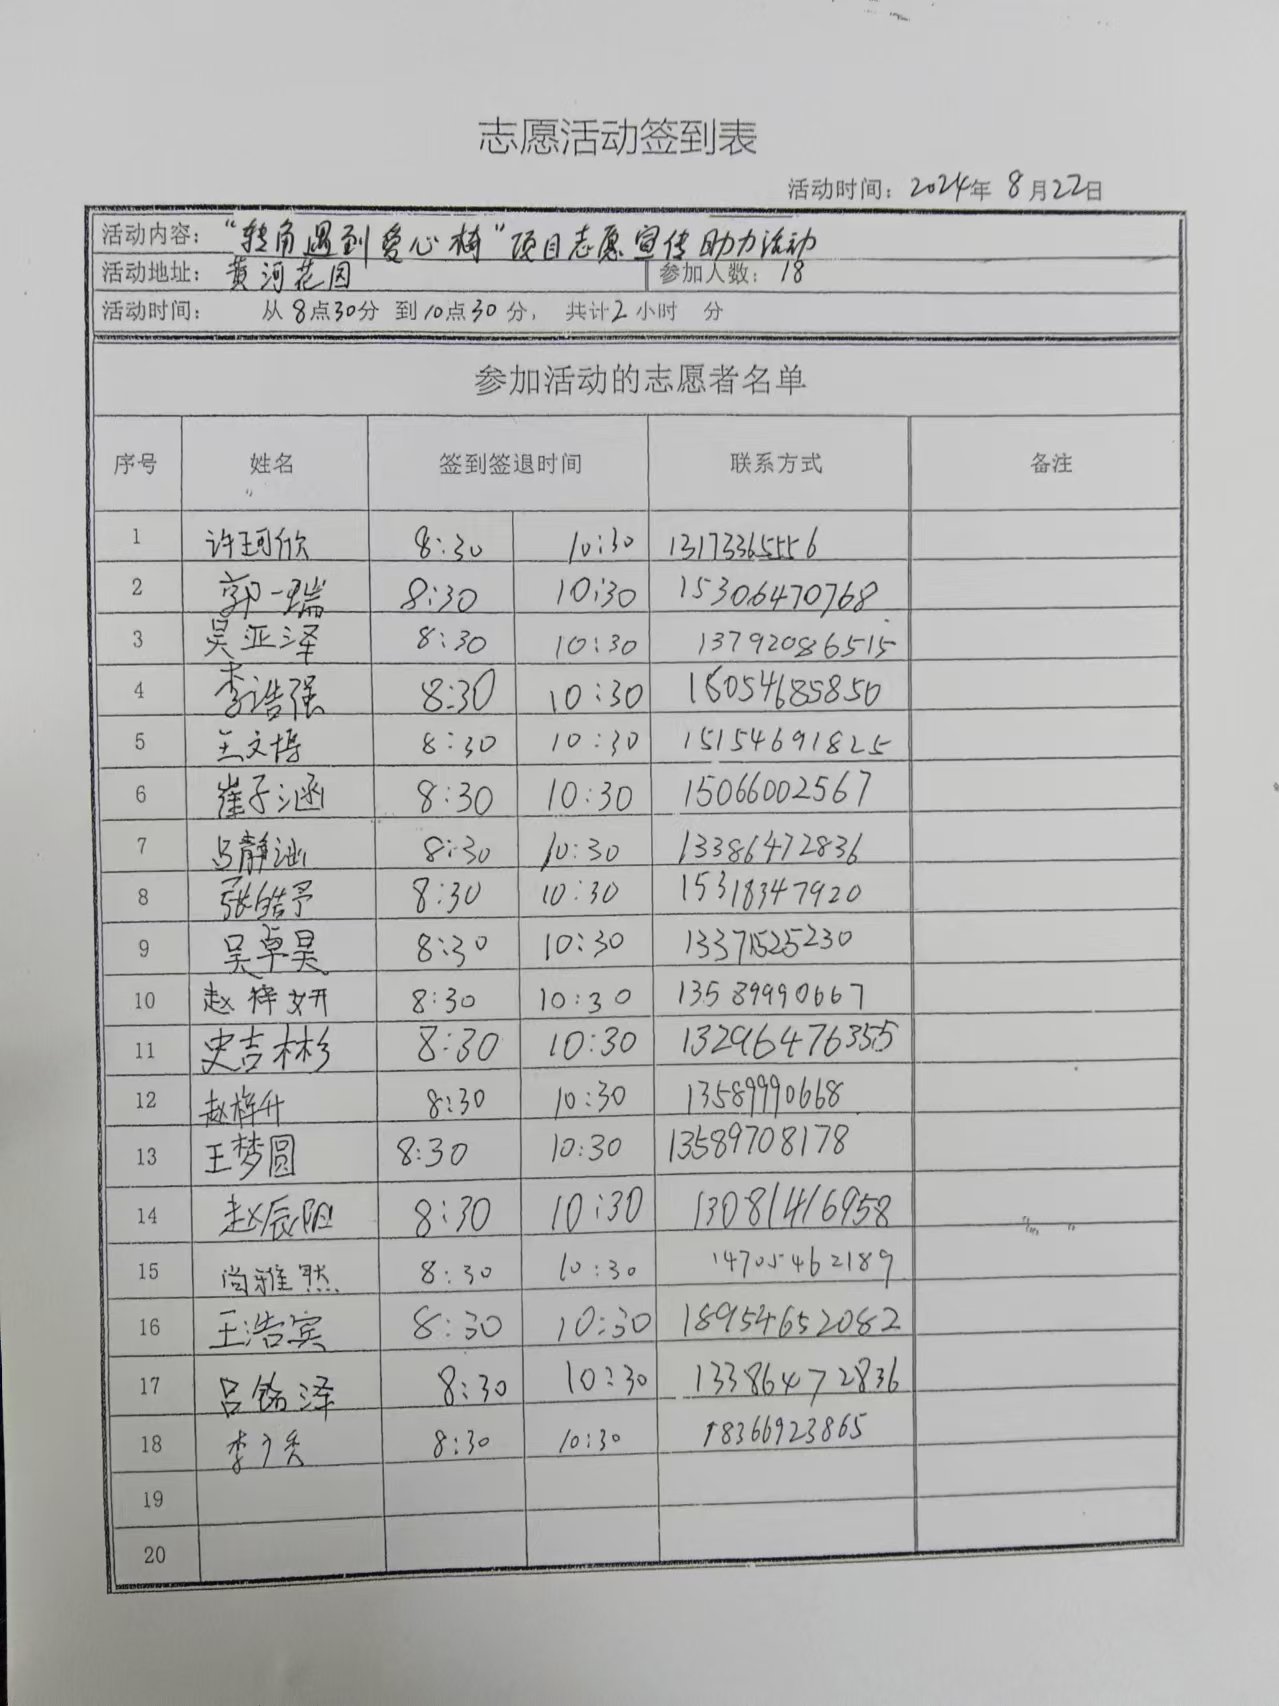 志愿活动签到表
活动时间：2024年 8月22日
活动内容：“转角遇到爱心椅”项目志愿宣传助力活动
活动地址：黄河花园 参加人数：18
活动时间： 从8点30分 到10点30分， 共计2小时 分
参加活动的志愿者名单
序号 姓名 签到签退时间 联系方式 备注
1 许珂欣 8:30 10:30 13173365556
2 郭一瑞 8:30 10:30 15306470768
3 吴亚泽 8:30 10:30 13792086515
4 李浩强 8:30 10:30 18054685850
5 王文博 8:30 10:30 15154691825
6 崔子涵 8:30 10:30 15066002567
7 吕静涵 8:30 10:30 13386472836
8 张皓予 8:30 10:30 15318347920
9 吴卓昊 8:30 10:30 13371525230
10 赵梓妍 8:30 10:30 13589990667
11 史吉彬 8:30 10:30 13296476355
12 赵梓升 8:30 10:30 13589990668
13 王梦圆 8:30 10:30 13589708178
14 赵辰阳 8:30 10:30 13081416958
15 尚雅然 8:30 10:30 14705462189
16 王浩宾 8:30 10:30 18954652082
17 吕铭泽 8:30 10:30 13386472836
18 李 8:30 10:30 18366923865
19
20